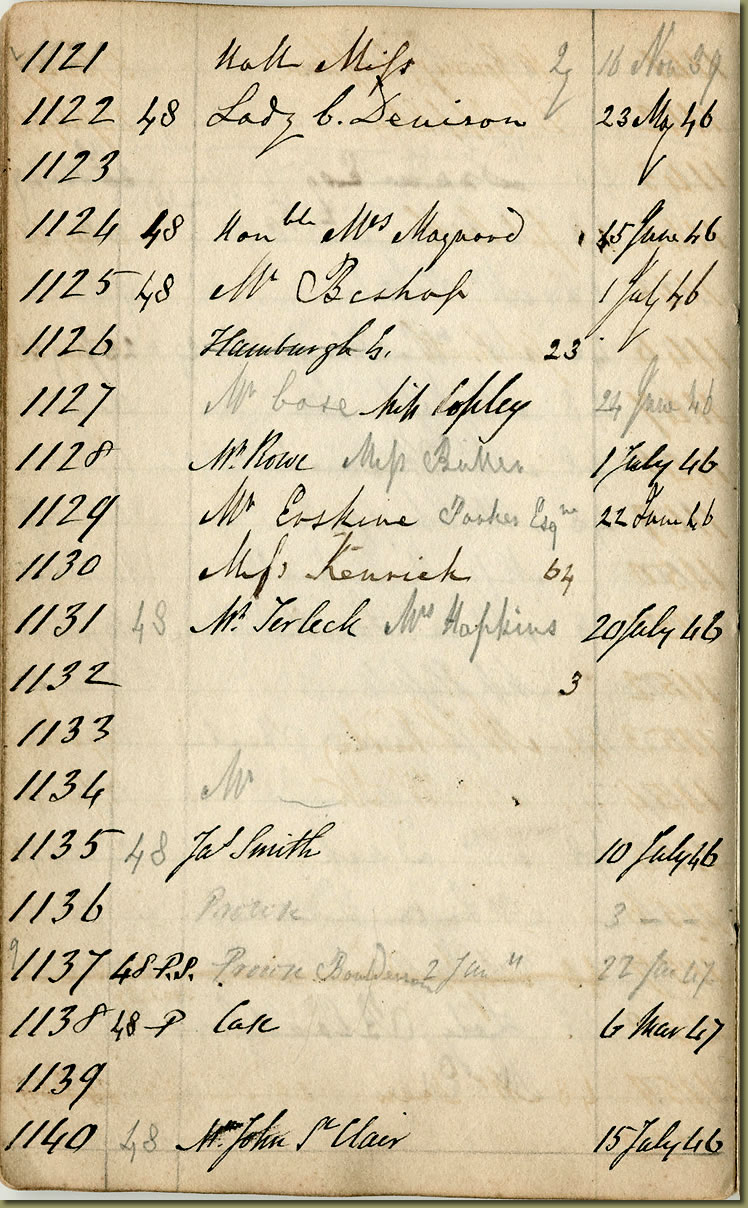 1121 Miss 16 Nov 39
1122 48 Lady C. Denison 23 May 46
1123
1124 48 Honble Mrs Maynard 15 June 46
1125 48 Mr Bishop 1 July 46
1126 Hamburgh 23
1127 Mr Miss Copley 24 June 46
1128 Mr. Rowe Miss Butler 1 July 46
1129 Mr Erskine Parker Esqre 22 June 46
1130 Miss Kenrick 64
1131 48 Mr. Terleck Mrs Hopkins 20 July 46
1132 3
1133
1134 Mr
1135 48 Jas Smith 10 July 46
1136 3 - -
1137 48 P.S. 2 Jan 22 Jan 47
1138 48 P 6 Mar 47
1139
1140 48 John St Clair 15 July 46